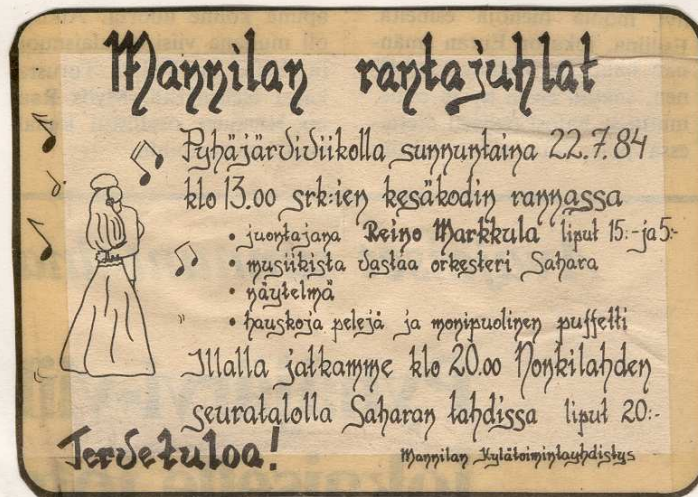 Mannilan rantajuhlat
Pyhäjärviviikolla sunnuntaina 22.7.84
klo 13.00 srk:ien kesäkodin rannassa
• juontajana Reino Markkula liput 15:- ja 5:-
• musiikista vastaa orkesteri Sahara
• näytelmä
• hauskoja pelejä ja monipuolinen puffetti
Illalla jatkamme klo 20.00 Honkilahden
seuratalolla Saharan tahdissa liput 20:-
Tervetuloa!
Mannilan Kylätoimintayhdistys